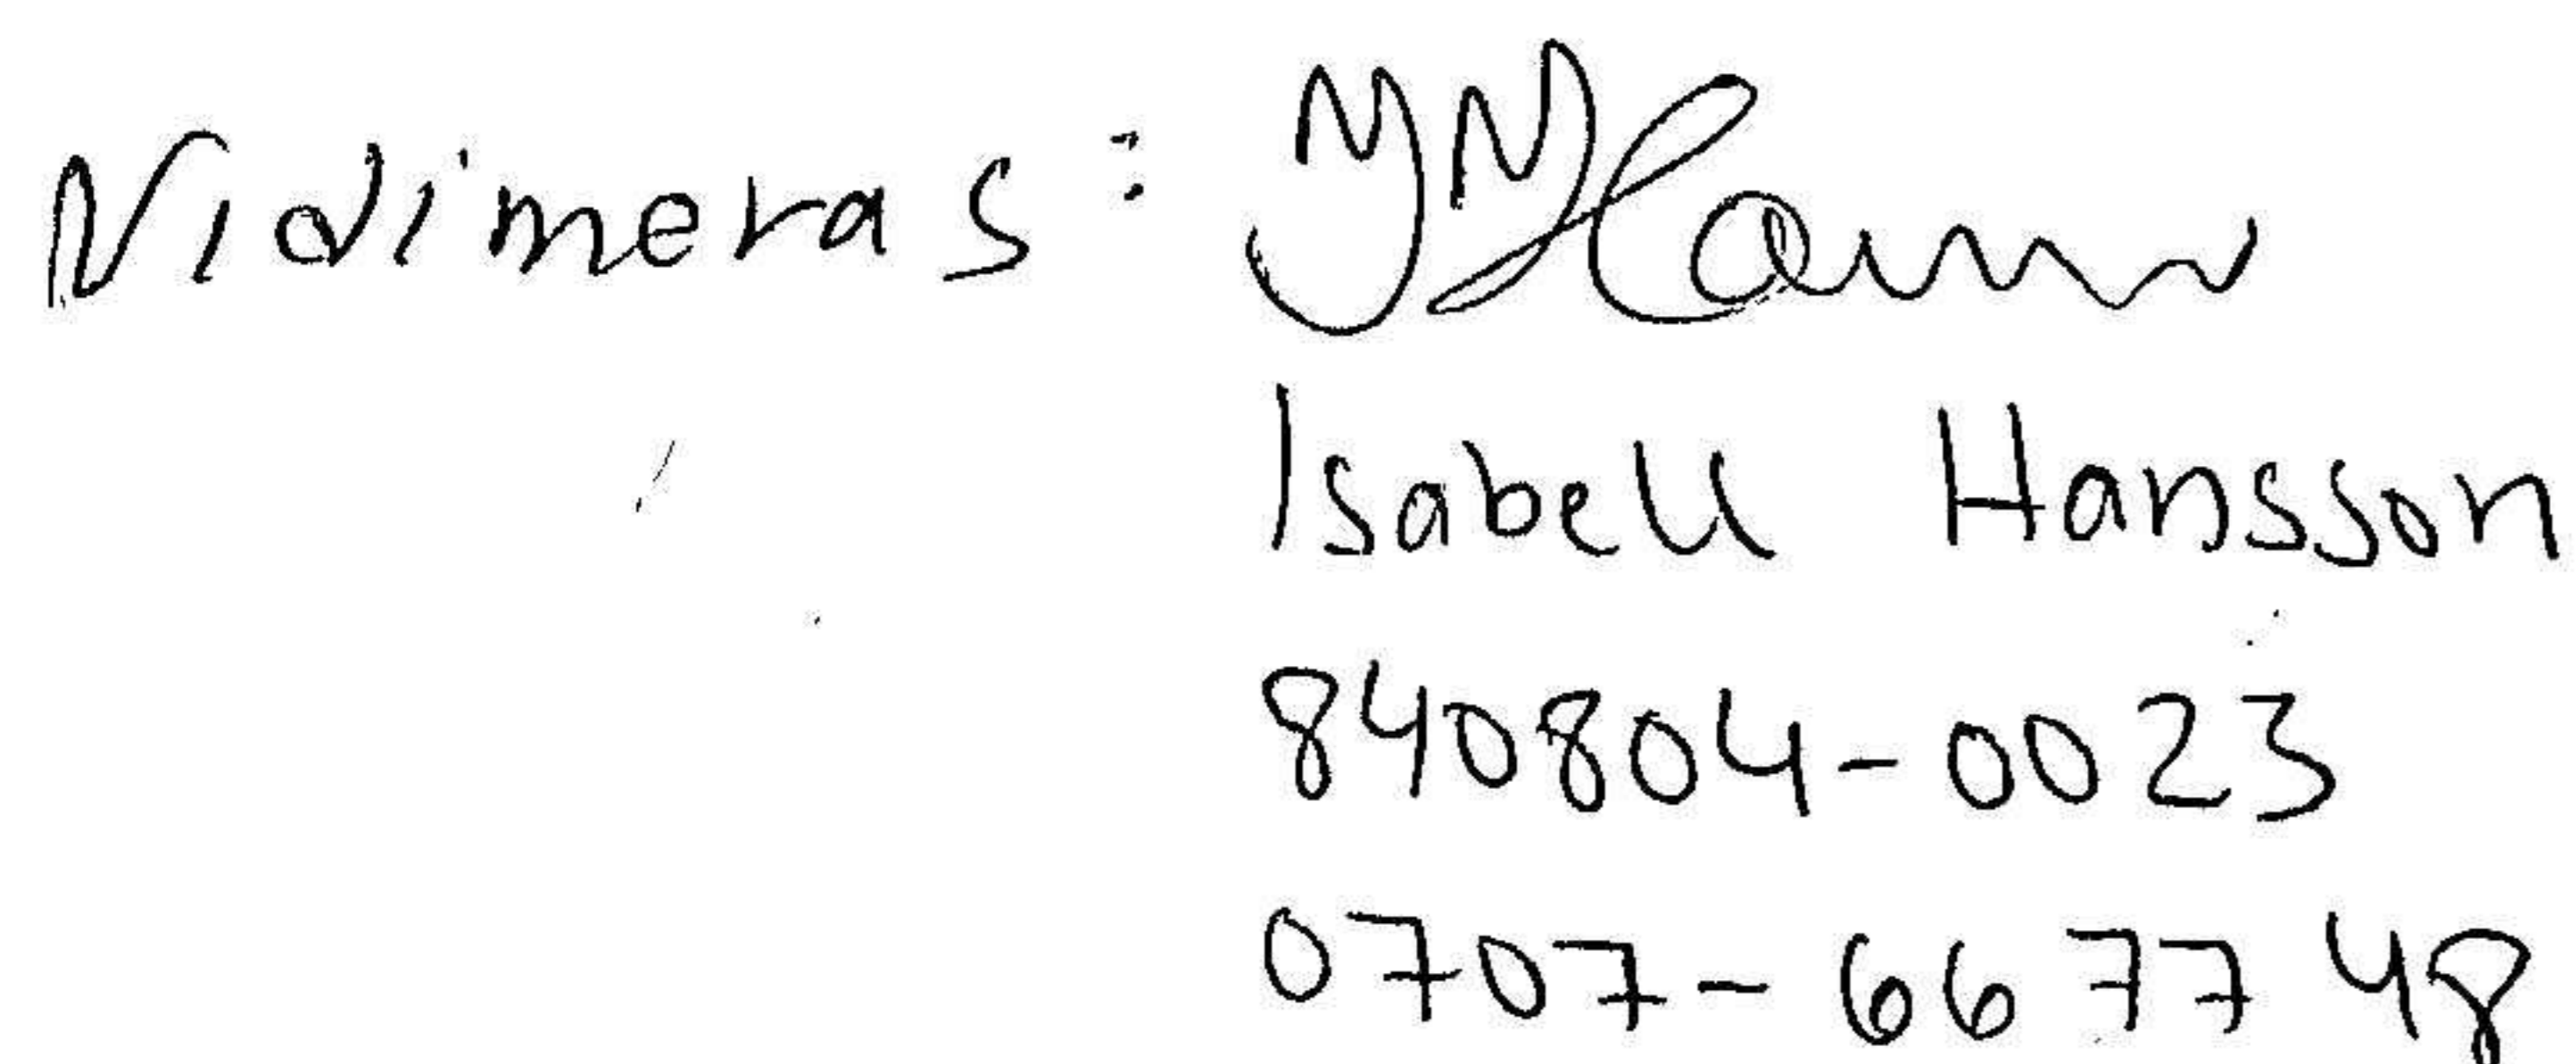 Vidimeras:
Isabell Hansson
840804-0023
0707-66 77 48